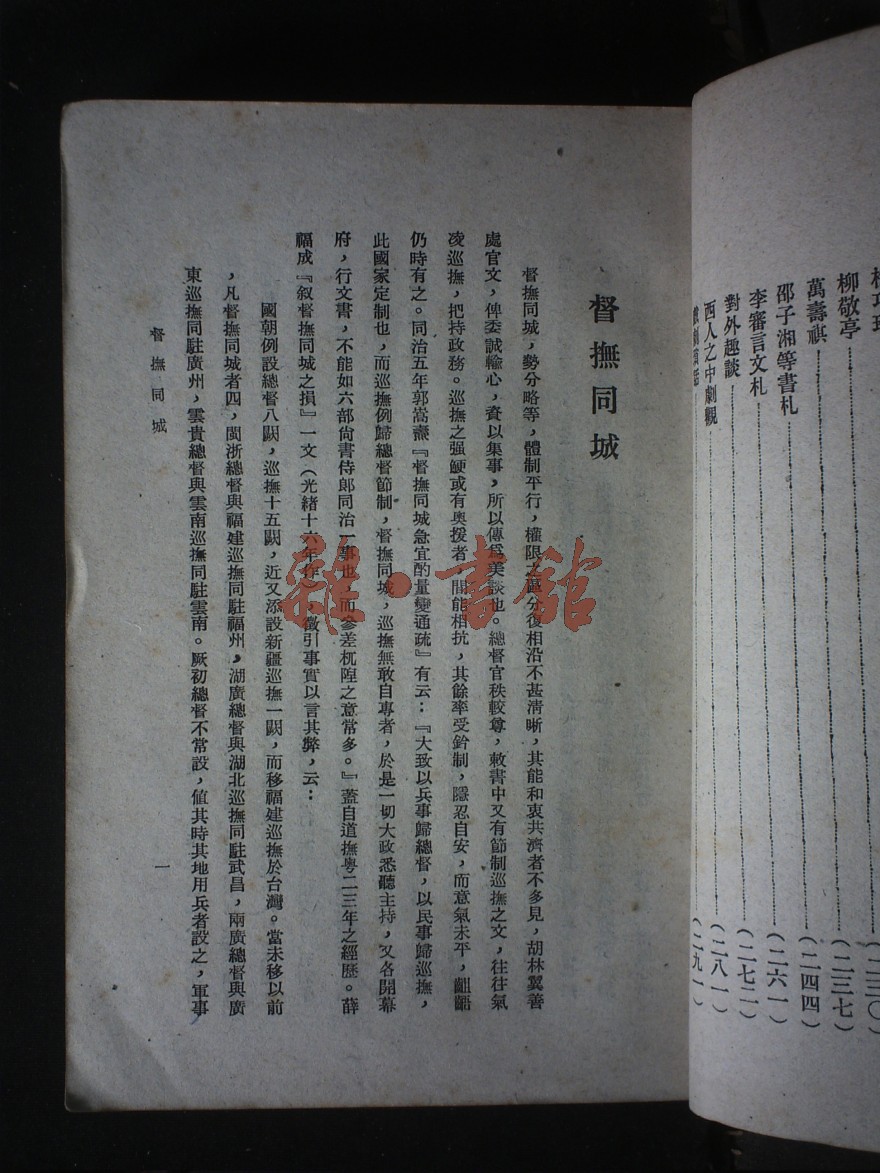 督撫同城
督撫同城,勢分略等,體制平行,權限之區分復相沿不甚清晰,其能和衷共濟者不多見,胡林翼善
處官文,俾委誠輸心,資以集事,所以傳爲美談也。總督官秩較尊,敕書中又有節制巡撫之文,往往氣
凌巡撫,把持政務。巡撫之强鯁或有奧援者,間能相抗,其餘率受鈐制,隱忍自安,而意氣未平,齟齬
仍時有之。同治五年郭嵩燾『督撫同城急宜酌量變通疏』有云:『大致以兵事歸總督,以民事歸巡撫,
此國家定制也,而巡撫例歸總督節制,督撫同城,巡撫無敢自專者,於是一切大政悉聽主持,又各開幕
府,行文書,不能如六部尚書侍郎同治一事也,而參差杌隉之意常多。』蓋自道撫粵二三年之經歷。薛
福成『叙督撫同城之損』一文(光緒十六年作),徵引事實以言其弊,云:
國朝例設總督八闕,巡撫十五闕,近又添設新疆巡撫一闕,而移福建巡撫於台灣。當未移以前
,凡督撫同城者四,閩浙總督與福建巡撫同駐福州,湖廣總督與湖北巡撫同駐武昌,兩廣總督與廣
東巡撫同駐廣州,雲貴總督與雲南巡撫同駐雲南。厥初總督不常設,值其時其地用兵者設之,軍事
督撫同城
一
(二三〇)
柳敬亭(二三七)
萬壽祺(二四四)
邵子湘等書札(二六一)
李審言文札(二七二)
對外趣談(二八一)
西人之中劇觀(二九一)
雜·書館